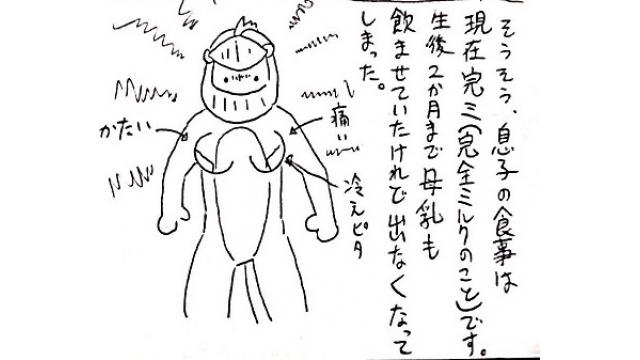 そうそう、息子の食事は
現在完ミ(完全ミルクのこと)です。
生後2か月まで母乳も
飲ませていたけれど出なくなって
しまった。
痛い
冷えピタ
かたい